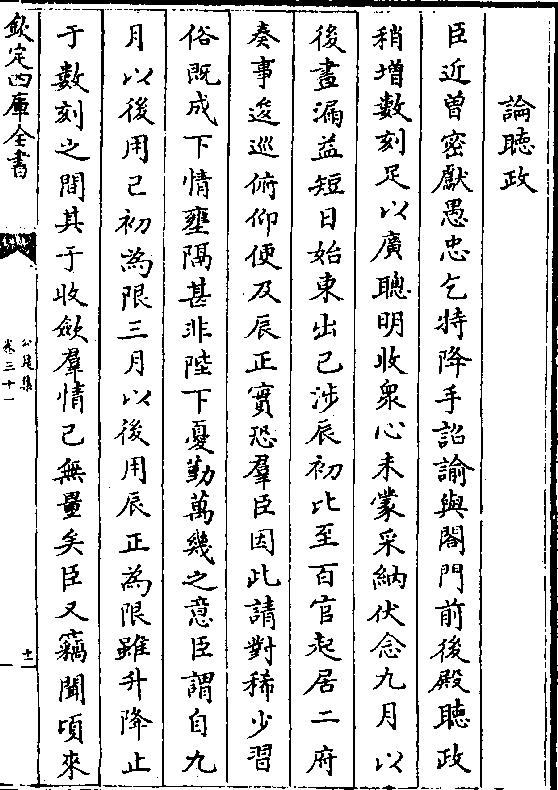 論聽政
臣近曽密獻愚忠乞特降手詔諭與閤門前後殿聽政
稍増數刻足以廣聰明收衆心未蒙采納伏念九月以
後晝漏益短日始東出已涉辰初比至百官起居二府
奏事逡巡俯仰便及辰正實恐羣臣因此請對稀少習
俗既成下情壅隔甚非陛下憂勤萬幾之意臣謂自九
月以後用巳初為限三月以後用辰正為限雖升降止
于數刻之間其于收斂羣情已無量矣臣又竊聞頃來
欽定四庫全書
公是集
卷三十一
十二